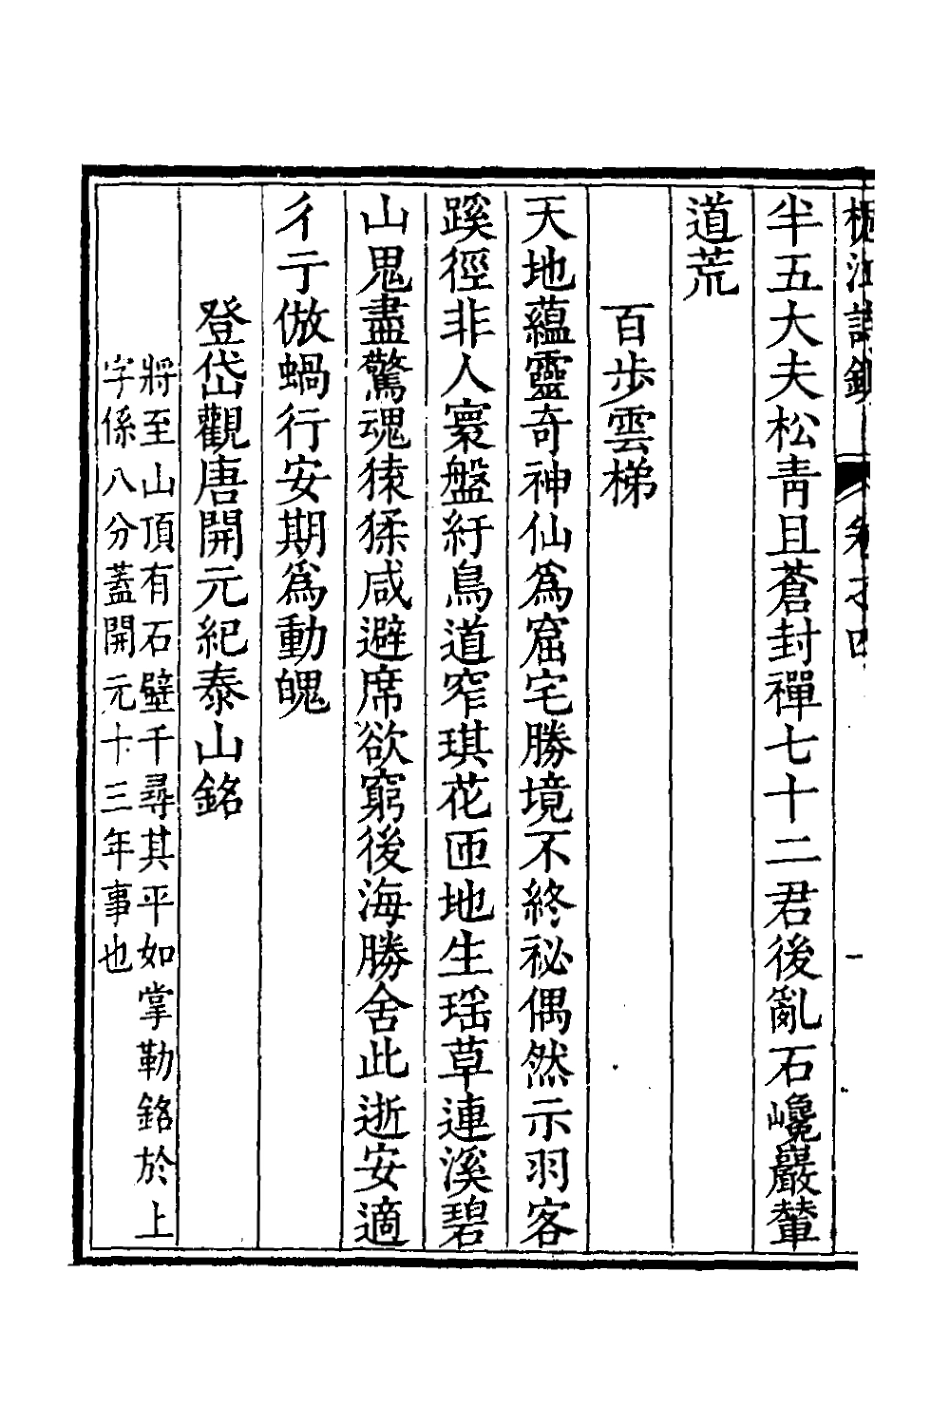 江詩鈔 卷之四
半五大夫松靑且蒼封禪七十二君後亂石巉巖輦
道荒
百步雲梯
天地蘊靈奇神仙爲窟宅勝境不終祕偶然示羽客
蹊徑非人寰盤紆鳥道窄琪花匝地生瑶草連溪碧
山鬼盡驚魂猿猱咸避席欲窮後海勝舍此逝安適
彳亍倣蝸行安期爲動魄
登岱觀唐開元紀泰山銘
將至山頂有石壁千尋其平如掌勒銘於上
字係八分蓋開元十三年事也